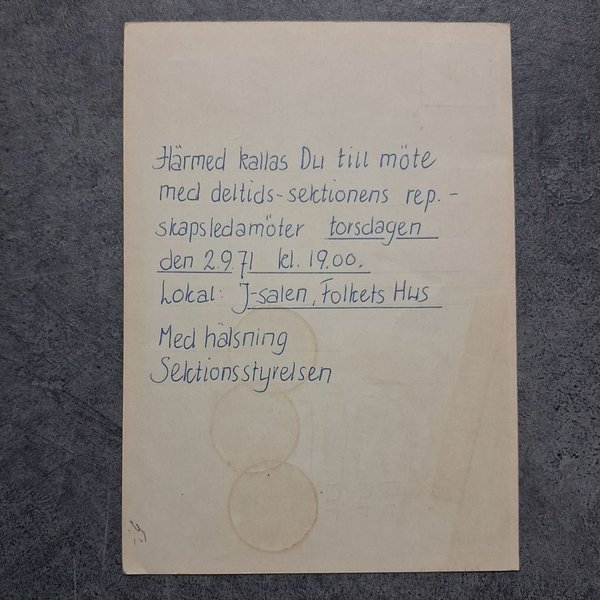 Härmed kallas Du till möte
med deltids-sektionens rep.-
skapsledamöter torsdagen
den 2.9.71 kl. 19.00.
Lokal: J-salen, Folkets Hus
Med hälsning
Sektionsstyrelsen